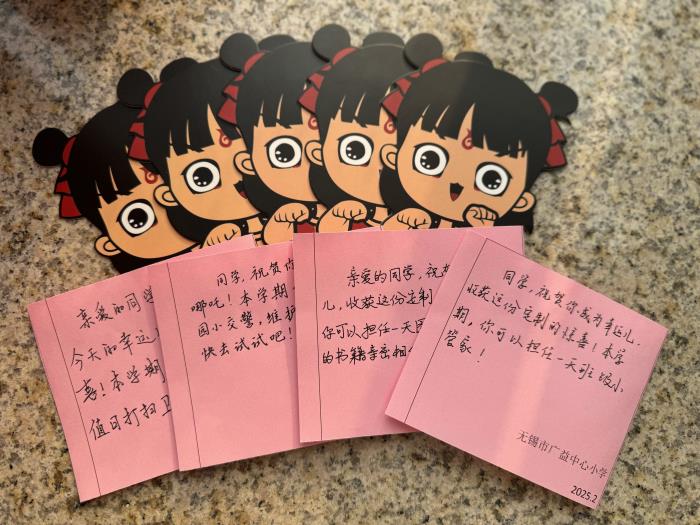 亲爱的同学
今天的幸运
喜！本学期
值日打扫
同学，祝贺你
哪吒！本学期
园小交警，维护
快去试试吧！
亲爱的同学，祝
儿，收获这份定制
你可以担任一天图
的书籍亲密相
同学，祝贺你成为幸运儿，
收获这份定制的惊喜！本学
期，你可以担任一天班级小
管家！
无锡市广益中心小学
2025.2